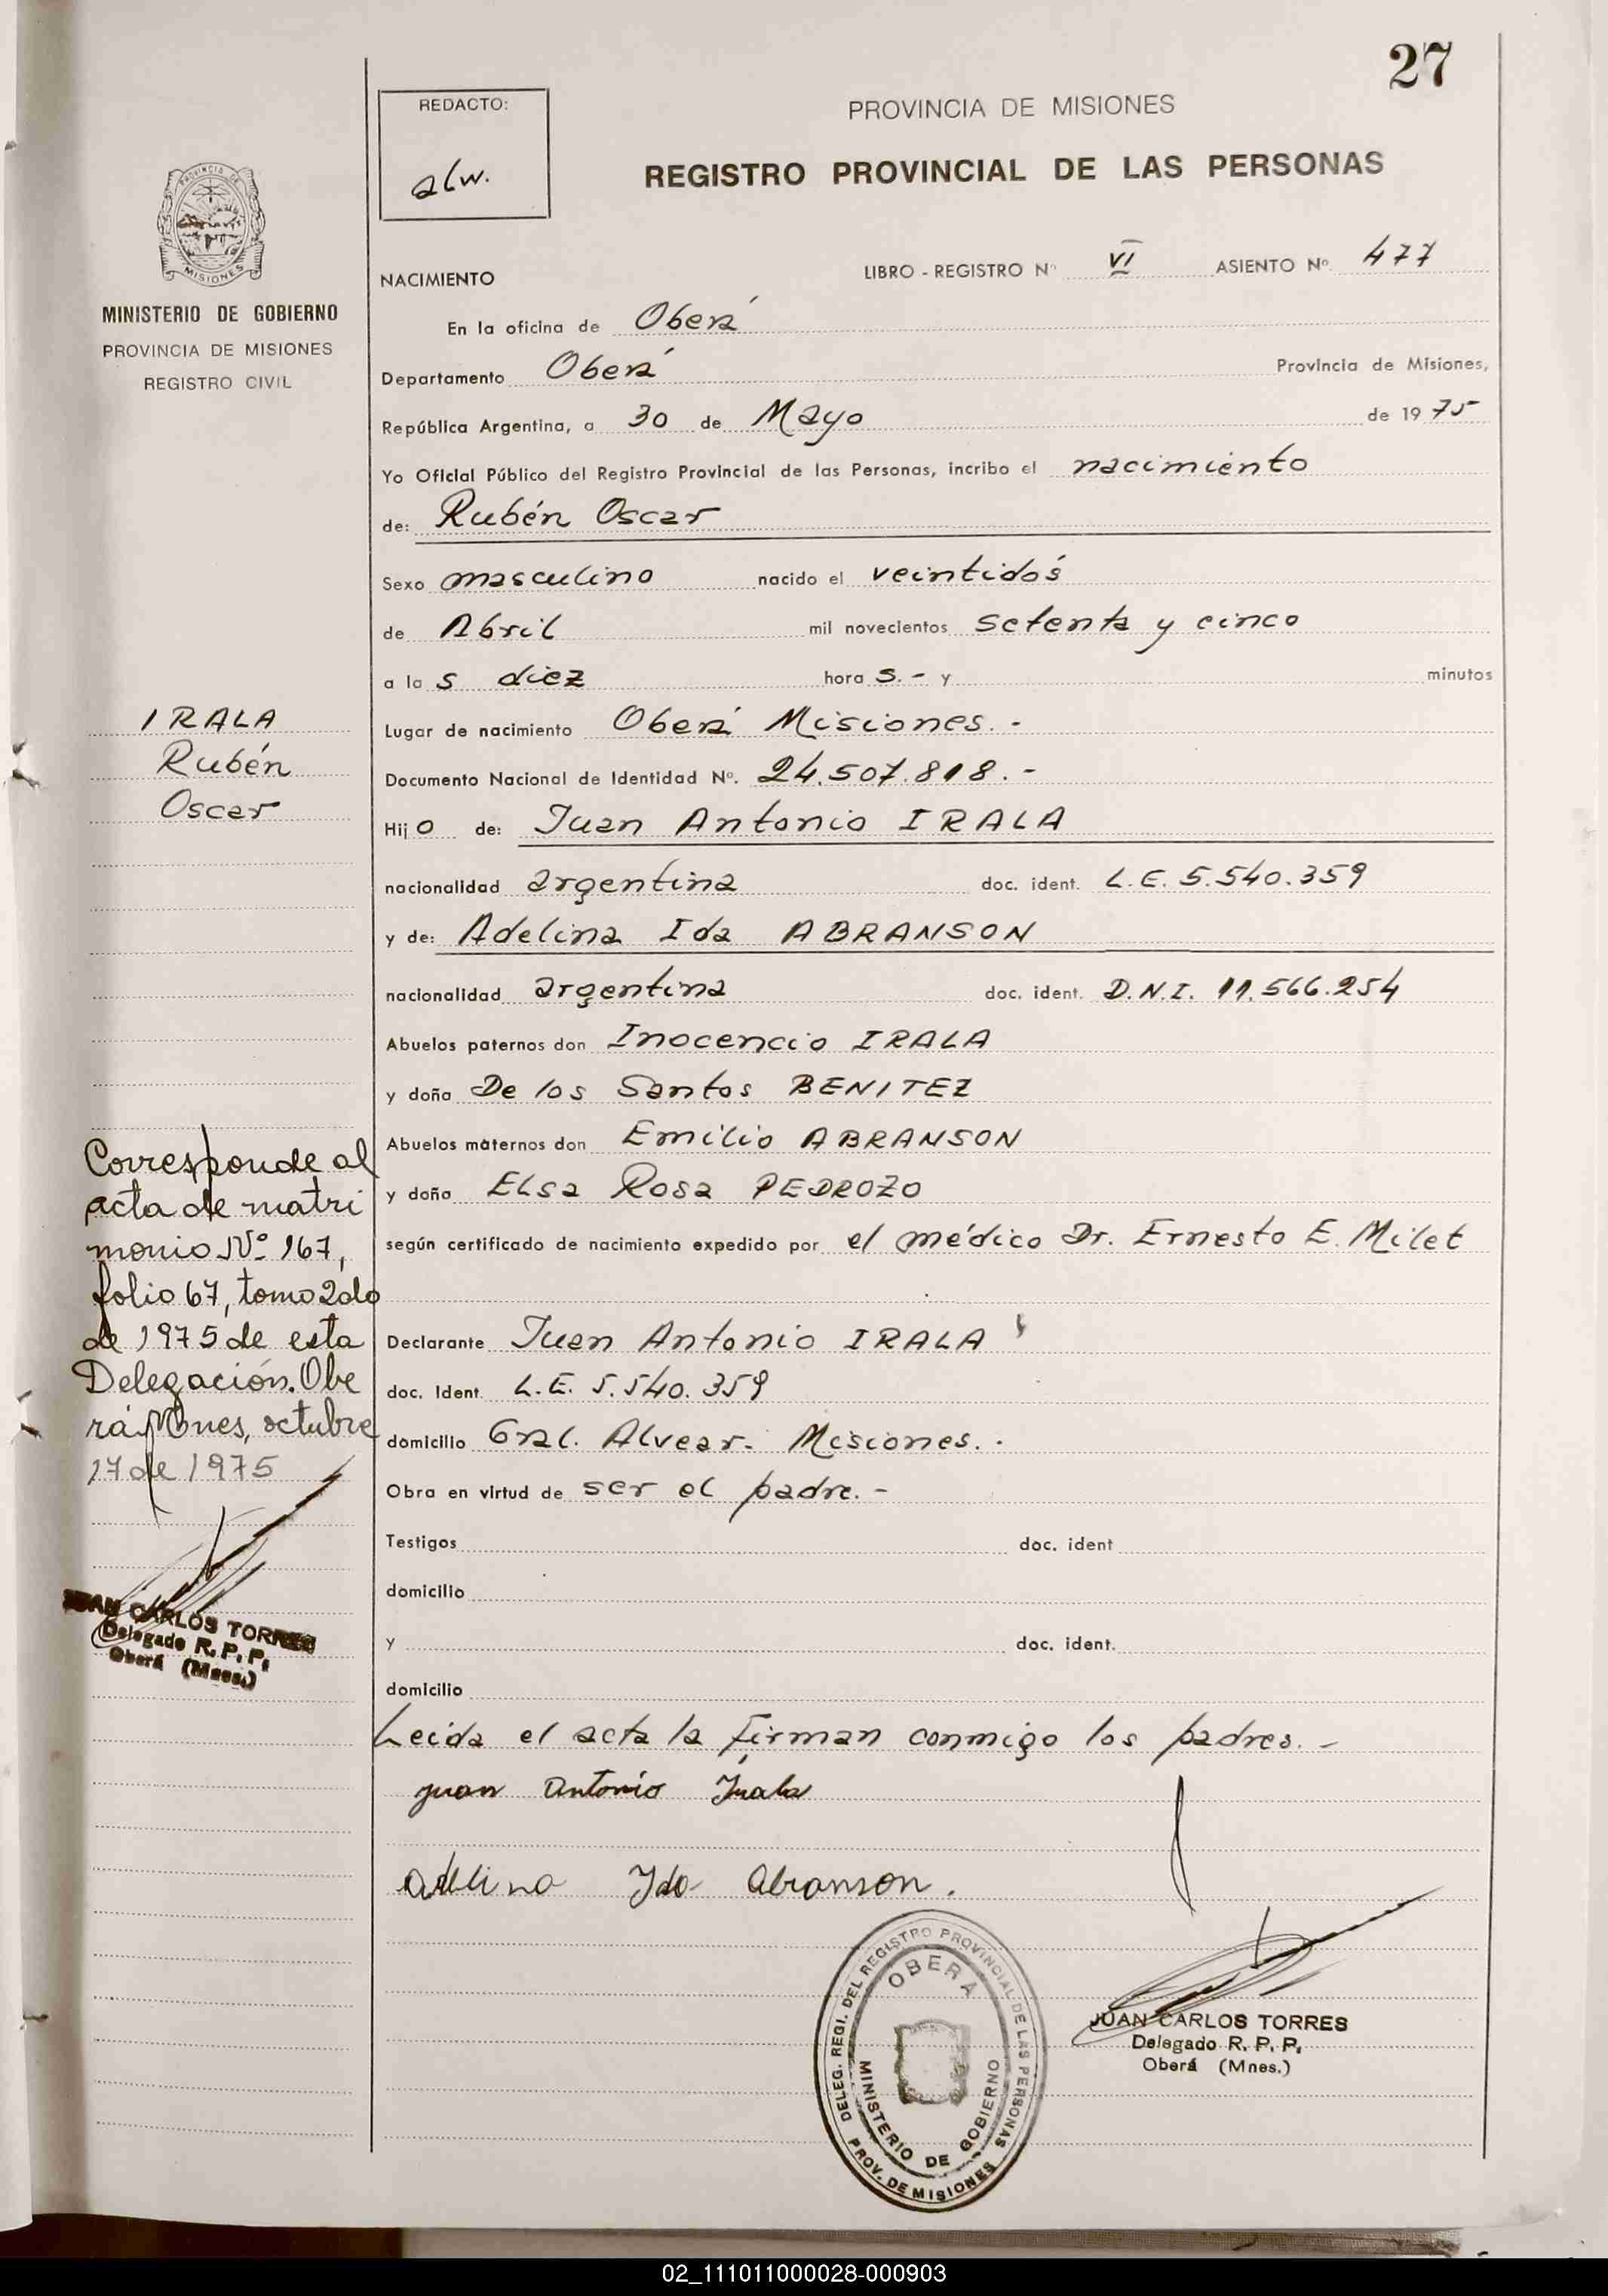 27
REDACTO:
alw.
PROVINCIA DE MISIONES
REGISTRO PROVINCIAL DE LAS PERSONAS
MISIONES
MINISTERIO DE GOBIERNO
PROVINCIA DE MISIONES
REGISTRO CIVIL
NACIMIENTO
LIBRO - REGISTRO Nº VI ASIENTO Nº 477
En la oficina de Oberá
Departamento Oberá Provincia de Misiones,
República Argentina, a 30 de Mayo de 1975
Yo Oficial Público del Registro Provincial de las Personas, incribo el nacimiento
de: Rubén Oscar
Sexo masculino nacido el veintidós
de Abril mil novecientos setenta y cinco
a las diez horas.- y minutos
Lugar de nacimiento Oberá Misiones.-
Documento Nacional de Identidad Nº. 24.507.818.-
Hijo de: Juan Antonio IRALA
nacionalidad argentina doc. ident. L.E. 5.540.359
y de: Adelina Ida ABRANSON
nacionalidad argentina doc. ident. D.N.I. 11.566.254
Abuelos paternos don Inocencio IRALA
y doña De los Santos BENITEZ
Abuelos maternos don Emilio ABRANSON
y doña Elsa Rosa PEDROZO
según certificado de nacimiento expedido por el médico Dr. Ernesto E. Milet
Declarante Juan Antonio IRALA
doc. Ident. L.E. 5.540.359
domicilio Gral. Alvear. Misiones.-
Obra en virtud de ser el padre.-
Testigos doc. ident
domicilio
y doc. ident.
domicilio
Leida el acta la firman conmigo los padres.-
Juan Antonio Irala
Adelina Ida Abranson.
IRALA
Rubén
Oscar
Corresponde al
acta de matri
monio Nº 167,
folio 67, tomo 2do
de 1975 de esta
Delegación. Obe
rá, Mnes, octubre
17 de 1975
JUAN CARLOS TORRES
Delegado R. P. P.
Oberá (Mnes.)
DELEG. REGI. DEL REGISTRO PROVINCIAL DE LAS PERSONAS
OBERÁ
MINISTERIO DE GOBIERNO
PROV. DE MISIONES
JUAN CARLOS TORRES
Delegado R. P. P.
Oberá (Mnes.)
02_111011000028-000903